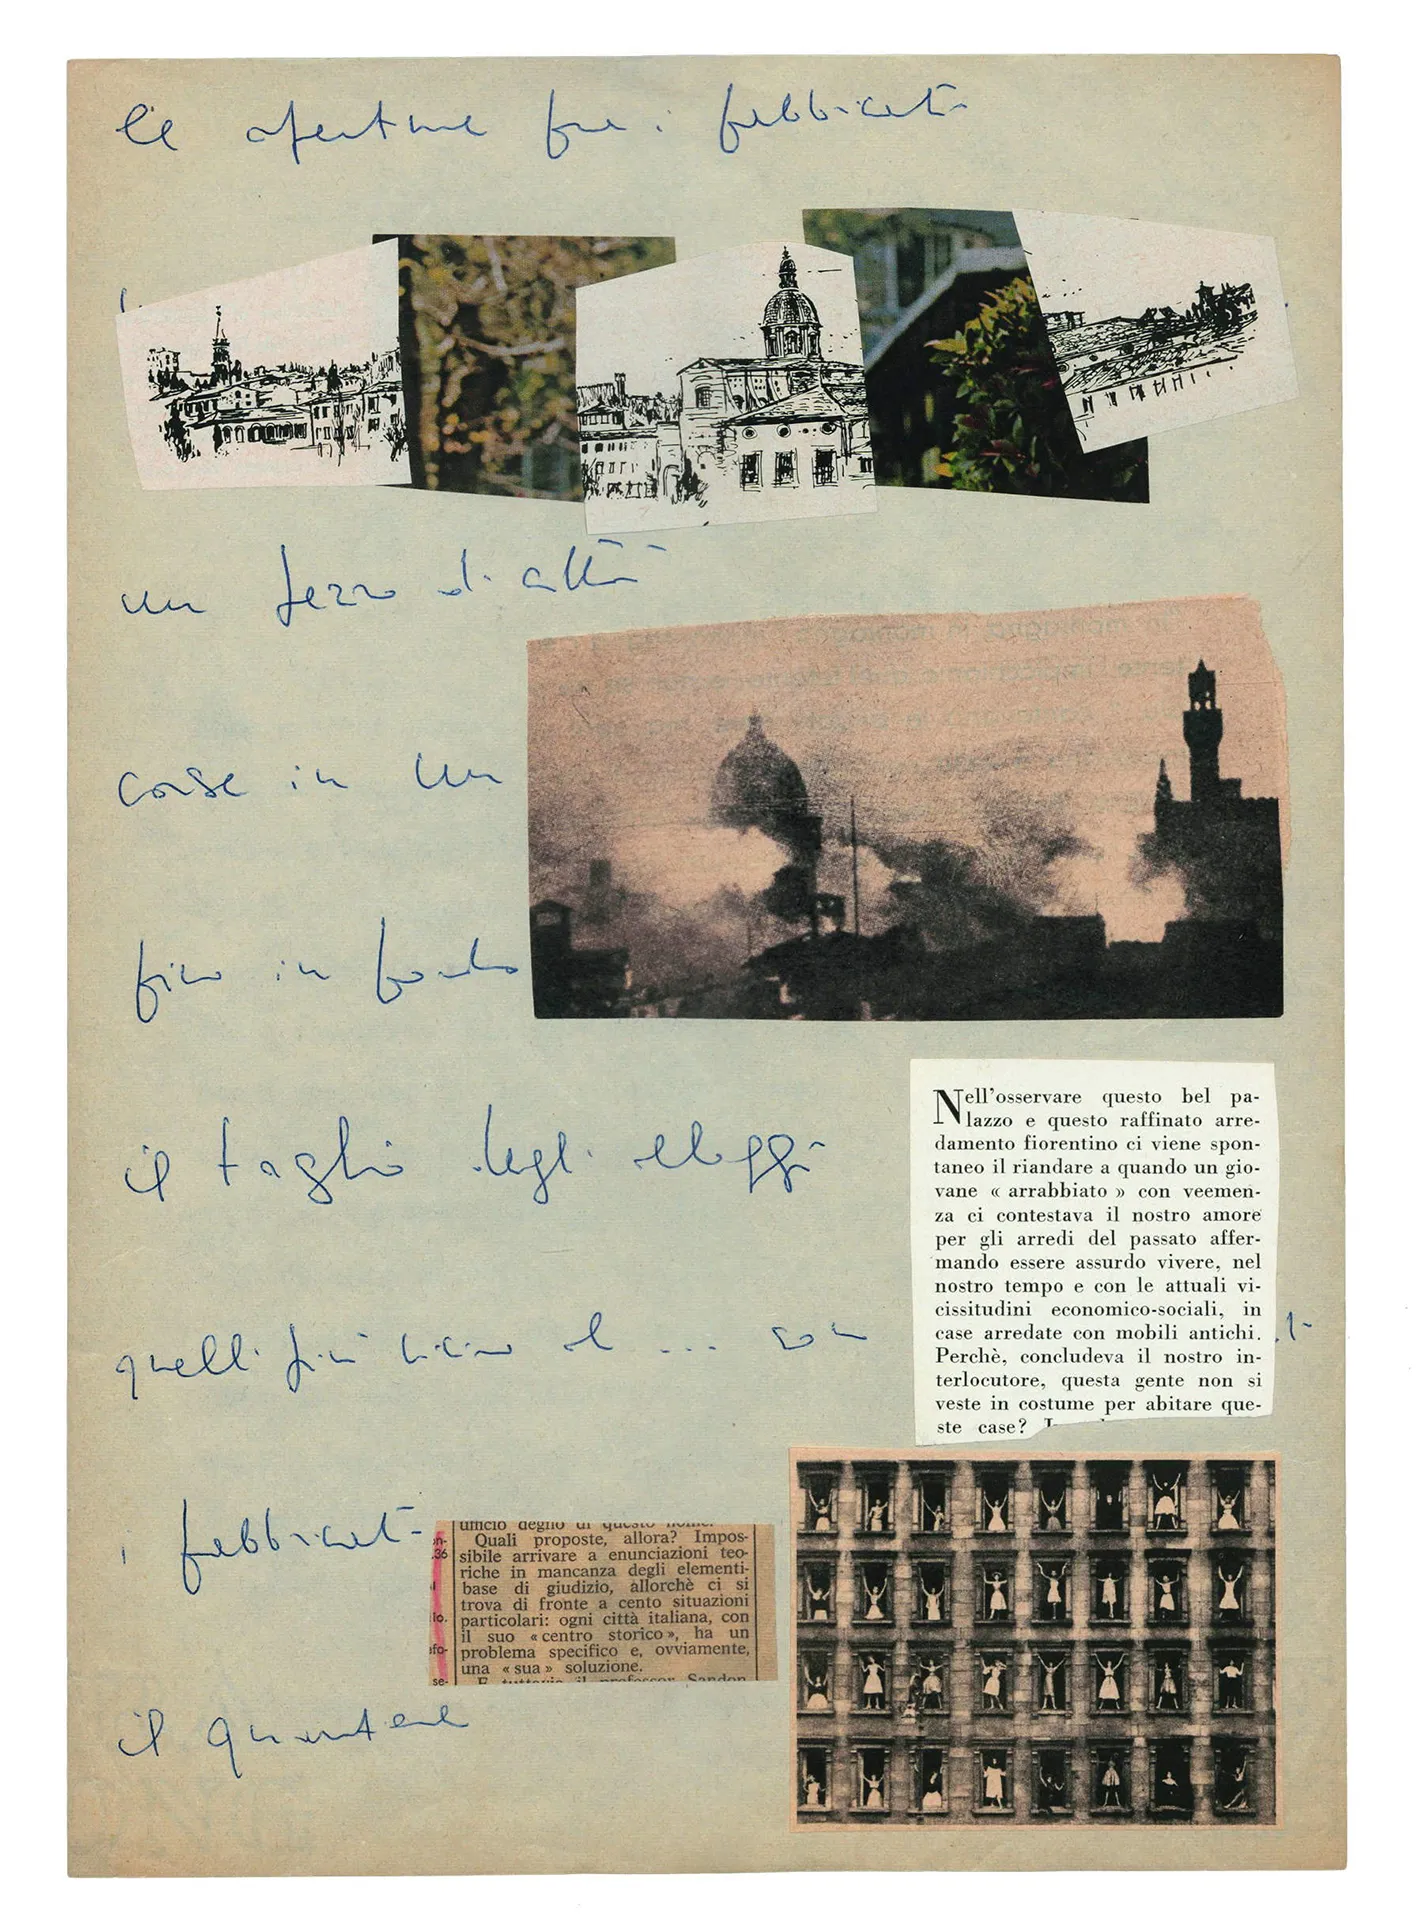 le aperture fra i fabbricati
un pezzo di città
corse in un
fino in fondo
il taglio degli alloggi
Nell'osservare questo bel pa-
lazzo e questo raffinato arre-
damento fiorentino ci viene spon-
taneo il riandare a quando un gio-
vane « arrabbiato » con veemen-
za ci contestava il nostro amore
per gli arredi del passato affer-
mando essere assurdo vivere, nel
nostro tempo e con le attuali vi-
cissitudini economico-sociali, in
case arredate con mobili antichi.
Perchè, concludeva il nostro in-
terlocutore, questa gente non si
veste in costume per abitare que-
ste case?
quelli più vicino al ... son
i fabbricati
ufficio degno di questo nome.
Quali proposte, allora? Impos-
sibile arrivare a enunciazioni teo-
riche in mancanza degli elementi-
base di giudizio, allorchè ci si
trova di fronte a cento situazioni
particolari: ogni città italiana, con
il suo «centro storico», ha un
problema specifico e, ovviamente,
una «sua» soluzione.
E tuttavia il professor Sandon
on-
.36
lo.
afo-
se-
il quartiere